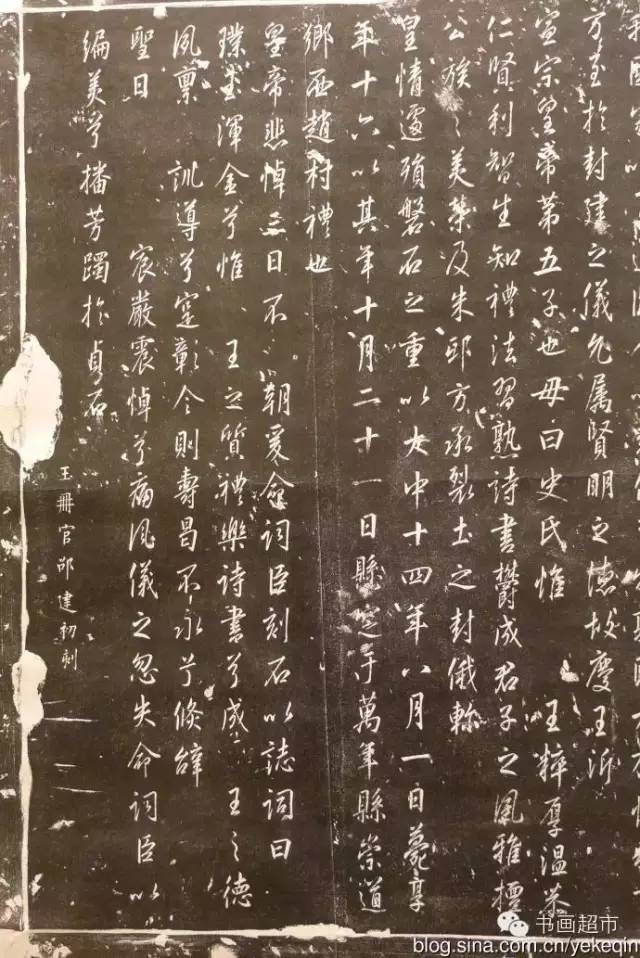 方茎於封建之儀允属賢明之德故慶王沂
宣宗皇帝第五子也母曰史氏惟 王粹厚温恭
仁賢利智生知禮法習熟詩書欝成君子之風雅擅
公族之美荣及朱邸方承裂土之封俄軫
皇情遽殞磐石之重以大中十四年八月一日薨享
年十六以其年十月二十一日縣窆于萬年縣崇道
鄉西趙村禮也
皇帝悲悼三日不 朝爰命詞臣刻石以誌詞曰
璞玉渾金兮惟 王之質禮樂詩書兮成 王之德
夙禀 訓導兮寔彰令則壽昌不永兮倏辞
聖日 宸嚴震悼兮痛風儀之忽失命詞臣以
編美兮播芳躅於貞石
王册官邵建初刻
书画超市
blog.sina.com.cn/yekeqin